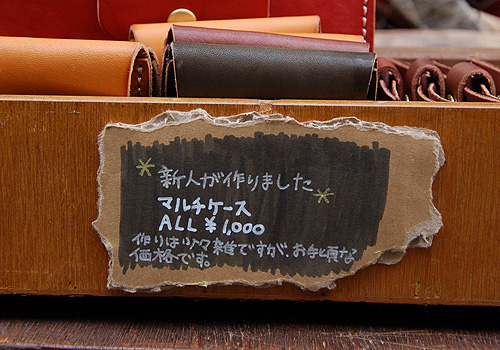 * 新人が作りました *
マルチケース
ALL ¥1,000
作りは少々雑ですが、お手頃な
価格です。